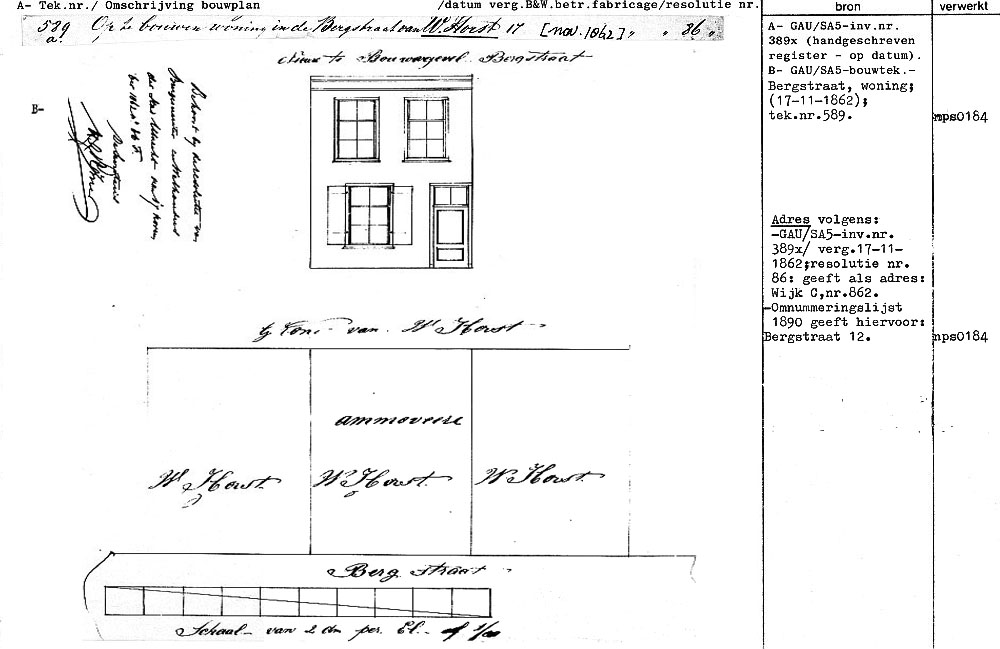 A- Tek.nr./ Omschrijving bouwplan /datum verg.B&W.betr.fabricage/resolutie nr.
589 a. Op te bouwen woning in de Bergstraat van W. Horst 17 [nov. 1862] „ „ 86 „
te Bouwen Bergstraat
B-
Behoort bij de resolutie van
Burgemeester en Wethouders
der Stad Utrecht van
tg van W Horst
ammoveere
W Horst W Horst W Horst
Berg straat
Schaal van 2 dm per El of 1/00
bron
A- GAU/SA5-inv.nr.
389x (handgeschreven
register - op datum).
B- GAU/SA5-bouwtek.-
Bergstraat, woning;
(17-11-1862);
tek.nr.589.
Adres volgens:
-GAU/SA5-inv.nr.
389x/ verg.17-11-
1862;resolutie nr.
86: geeft als adres:
Wijk C,nr.862.
-Omnummeringslijst
1890 geeft hiervoor:
Bergstraat 12.
verwerkt
mps0184
mps0184